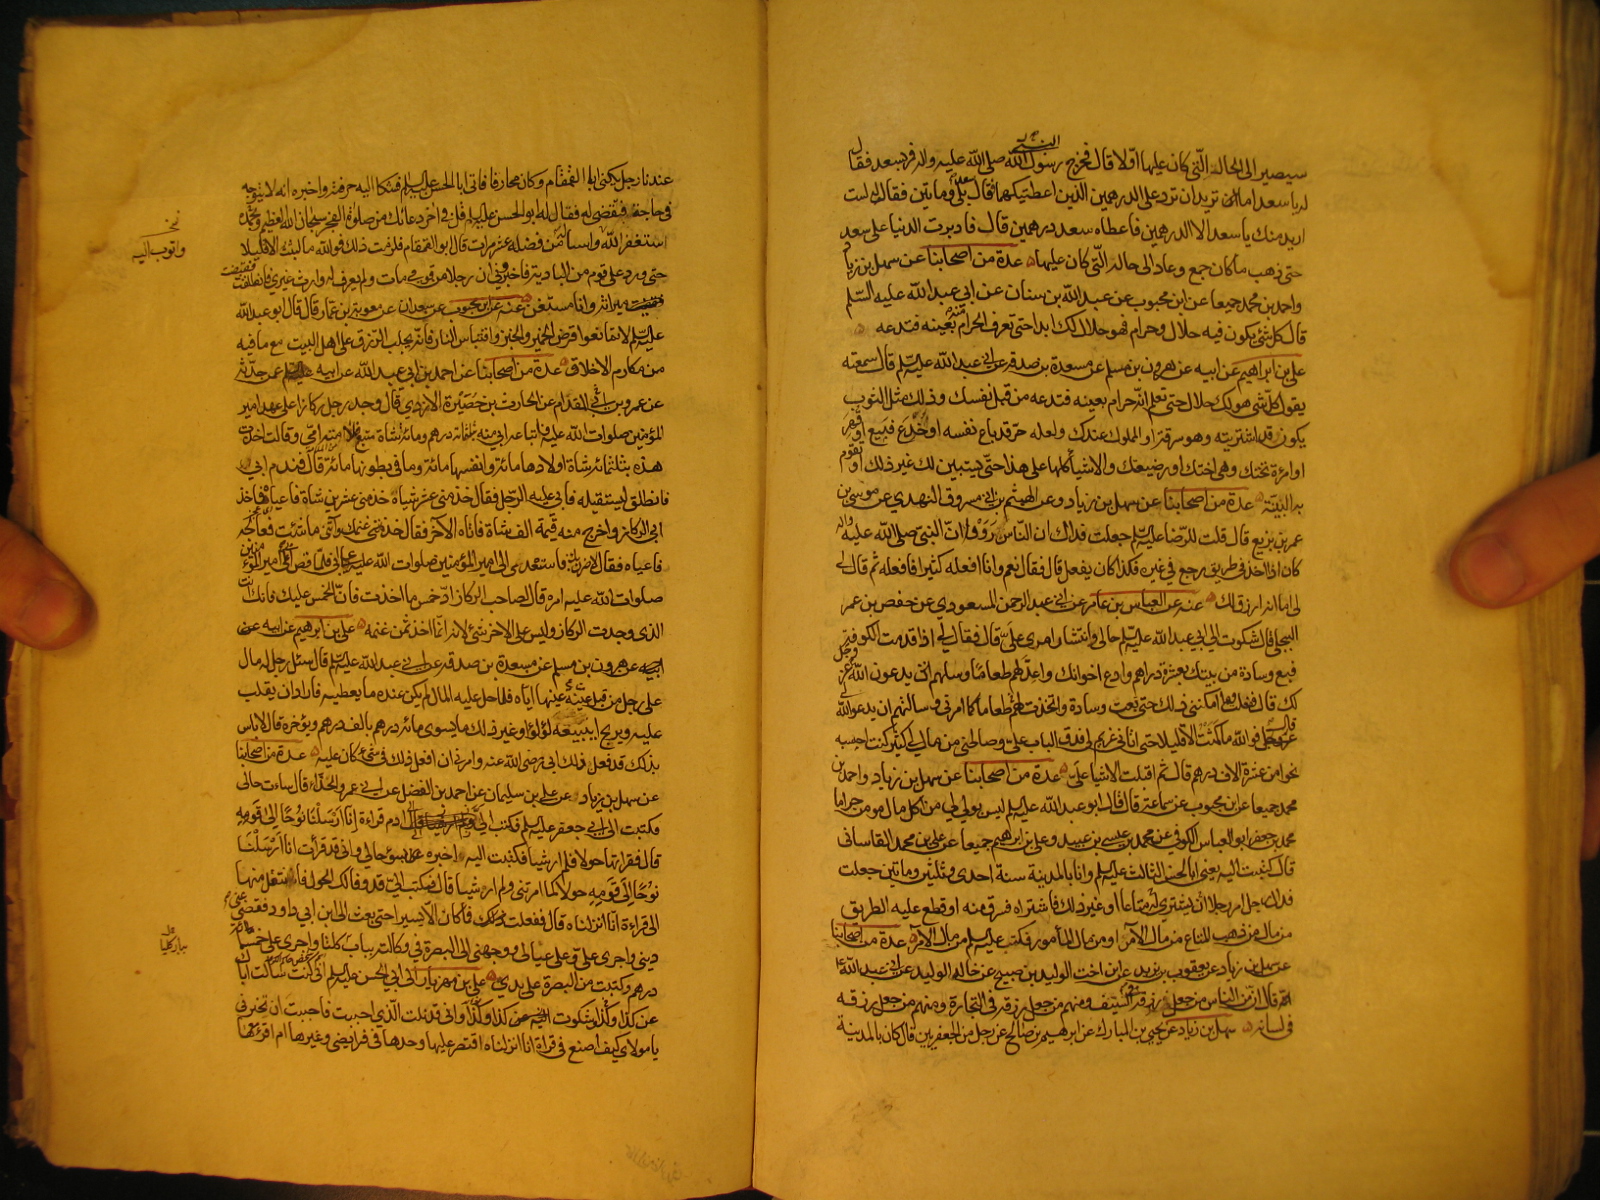 النبي
سيصير الى الحالة التي كان عليها اولا قال فخرج رسول الله صلى الله عليه واله فمر بسعد فقال
له يا سعد اما تريد ان ترد على الدرهمين الذين اعطيتكهما فقال سعد بلى ومائتين فقال له لست
اريد منك يا سعد الا الدرهمين فاعطاه سعد درهمين قال فادبرت الدنيا على سعد
حتى ذهب ما كان جمع وعاد الى حاله التي كان عليها عدة من اصحابنا عن سهل بن زياد
واحمد بن محمد جميعا عن ابن محبوب عن عبد الله بن سنان عن ابي عبد الله عليه السلم
قال كل شئ يكون فيه حلال وحرام فهو حلال لك ابدا حتى تعرف الحرام منه بعينه فتدعه
علي بن ابراهيم عن ابيه عن هرون بن مسلم عن مسعدة بن صدقة عن ابي عبد الله عليه السلم قال سمعته
يقول كل شئ هو لك حلال حتى تعلم انه حرام بعينه فتدعه من قبل نفسك وذلك مثل الثوب
يكون قد اشتريته وهو سرقة او المملوك عندك ولعله حر قد باع نفسه او خدع فبيع او قهر
او امرءة تحتك وهي اختك او رضيعتك والاشياء كلها على هذا حتى يستبين لك غير ذلك او تقوم
به البينة عدة من اصحابنا عن سهل بن زياد وعن الهيثم بن ابي مسروق النهدي عن موسى بن
عمر بن بزيع قال قلت للرضا عليه السلم جعلت فداك ان الناس رووا ان النبي صلى الله عليه واله
كان اذا اخذ في طريق رجع في غيره فكذا كان يفعل قال فقال نعم وانا افعله كثيرا فافعله ثم قال لي
لي اما انه ارزق لك عنه عن العباس بن عامر عن ابي عبد الرحمن المسعودي عن حفص بن عمر
البجلي قال شكوت الى ابي عبد الله عليه السلم حالي وانتشار امري علي قال فقال لي اذا قدمت الكوفة
فبع وسادة من بيتك بعشرة دراهم وادع اخوانك واعد لهم طعاما وسلهم ان يدعون الله عز وجل
لك قال ففعلت وما امكنني ذلك حتى بعت وسادة واتخذت لهم طعاما كما امرني وسالتهم ان يدعو الله لي
قال فوالله ما مكثت الا قليلا حتى اتاني غريم لي فدق الباب علي وصالحني من مال لي كثير كنت احسبه
نحوا من عشرة الاف درهم قال ثم اقبلت الاشياء علي عدة من اصحابنا عن سهل بن زياد واحمد بن
محمد جميعا عن ابن محبوب عن سماعة قال قال ابو عبد الله عليه السلم ليس بولي لي من اكل مال مومن حراما
محمد بن جعفر ابو العباس الكوفي عن محمد بن عيسى بن عبيد وعلي بن ابرهيم جميعا عن علي بن محمد القاساني
قال كتبت اليه يعني ابا الحسن الثالث عليه السلم وانا بالمدينة سنة احدى وثلثين ومائتين جعلت
فداك رجل امر رجلا ان يشتري له متاعا او غير ذلك فاشتراه فسرق منه او قطع عليه الطريق
من مال من ذهب المتاع من مال الآمر او من مال المأمور فكتب عليه السلم من مال الآمر عدة من اصحابنا
عن سهل بن زياد عن يعقوب بن يزيد عن ابن اخت الوليد بن صبيح عن خاله الوليد عن ابي عبد الله
انه قال ان من الناس من جعل رزقه في السيف ومنهم من جعل رزقه في التجارة ومنهم من جعل رزقه
في لسانه سهل بن زياد عن يحيى بن المبارك عن ابرهيم بن صالح عن رجل من الجعفريين قال كان بالمدينة
عندنا رجل يكنى ابا القمقام وكان محارفا فاتى ابا الحسن عليه السلم فشكا اليه حرفته واخبره انه لا يتوجه
في حاجة فتقضى له فقال له ابو الحسن عليه السلم قل في اخر دعائك من صلوة الفجر سبحان الله العظيم وبحمده
استغفر الله واسأله من فضله عشر مرات قال ابو القمقام فلزمت ذلك فوالله ما لبثت الا قليلا
نخ
واتوب اليه
حتى ورد علي قوم من البادية فاخبروني ان رجلا من قومي مات ولم يعرف له وارث غيري فانطلقت
فقبضت ميراثه وانا مستغن عنه عن ابن محبوب عن سعدان عن معوية بن عمار قال قال ابو عبد الله
عليه السلم لا تمانعوا قرض الخمير والخبز واقتباس النار فانه يجلب الرزق على اهل البيت مع ما فيه
من مكارم الاخلاق عدة من اصحابنا عن احمد بن ابي عبد الله عن ابيه عمن حدثه
عن عمرو بن ابي المقدام عن الحارث بن حضيرة الازدي قال وجد رجل ركازا على عهد امير
المؤمنين صلوات الله عليه فابتاعه ابي منه بثلثمائة درهم ومائة شاة متبع فلامته امي وقالت اخذت
هذه بثلثمائة شاة اولادها مائة وانفسها مائة وما في بطونها مائة قال فندم ابي
فانطلق ليستقيله فابى عليه الرجل فقال خذ مني عشر شياه خذ مني عشرين شاة فاعياه فاخذ
ابي الركاز واخرج منه قيمة الف شاة فاتاه الاخر فقال خذ غنمك وآتني ما شئت فعالجه
فاعياه فقال لاضرن بك فاستعدى الى امير المؤمنين صلوات الله عليه على ابي فلما قص ابي على امير المؤمنين
صلوات الله عليه امره قال لصاحب الركاز اد خمس ما اخذت فان الخمس عليك فانك انت
الذي وجدت الركاز وليس على الاخر شئ لانه انما اخذ ثمن غنمه علي بن ابرهيم عن ابيه عن
هرون بن مسلم عن مسعدة بن صدقة عن ابي عبد الله عليه السلم قال سئل رجل له مال
على رجل من قبل عينة عينها اياه فلما حل عليه المال لم يكن عنده ما يعطيه فاراد ان يقلب
عليه ويربح ايبيعه لؤلؤا وغير ذلك ما يسوى مائة درهم بالف درهم ويؤخره قال لا باس
بذلك قد فعل ذلك ابي رضي الله عنه وامرني ان افعل ذلك في شئ كان عليه عدة من اصحابنا
عن سهل بن زياد عن علي بن سليمان عن احمد بن الفضل عن ابي عمرو الحذاء قال ساءت حالي
وكتبت الى ابي جعفر عليه السلم فكتب الي ادم قراءة إنا أرسلنا نوحا إلى قومه
قال فقراتها حولا فلم ار شيئا فكتبت اليه اخبره بسوء حالي واني قد قرأت انا ارسلنا
نوحا الى قومه حولا كما امرتني ولم ار شيئا قال فكتب الي قد وفا لك الحول فانتقل منها
الى قراءة انا انزلناه قال ففعلت فما كان الا يسيرا حتى بعث الي ابن ابي داود فقضى عني
ديني واجرى علي وعلى عيالي ووجهني الى البصرة في وكالته بباب كلتا واجرى علي خمسمائة
درهم وكتبت من البصرة على يدي علي بن مهزيار الى ابي الحسن عليه السلم اني كنت سألت اباك
عن كذا وكذا وشكوت اليه كذا وكذا واني قد نلت الذي احببت فاحببت ان تخبرني
يا مولاي كيف اصنع في قراءة انا انزلناه اقتصر عليها وحدها في فرايضي وغيرها ام اقرء معها